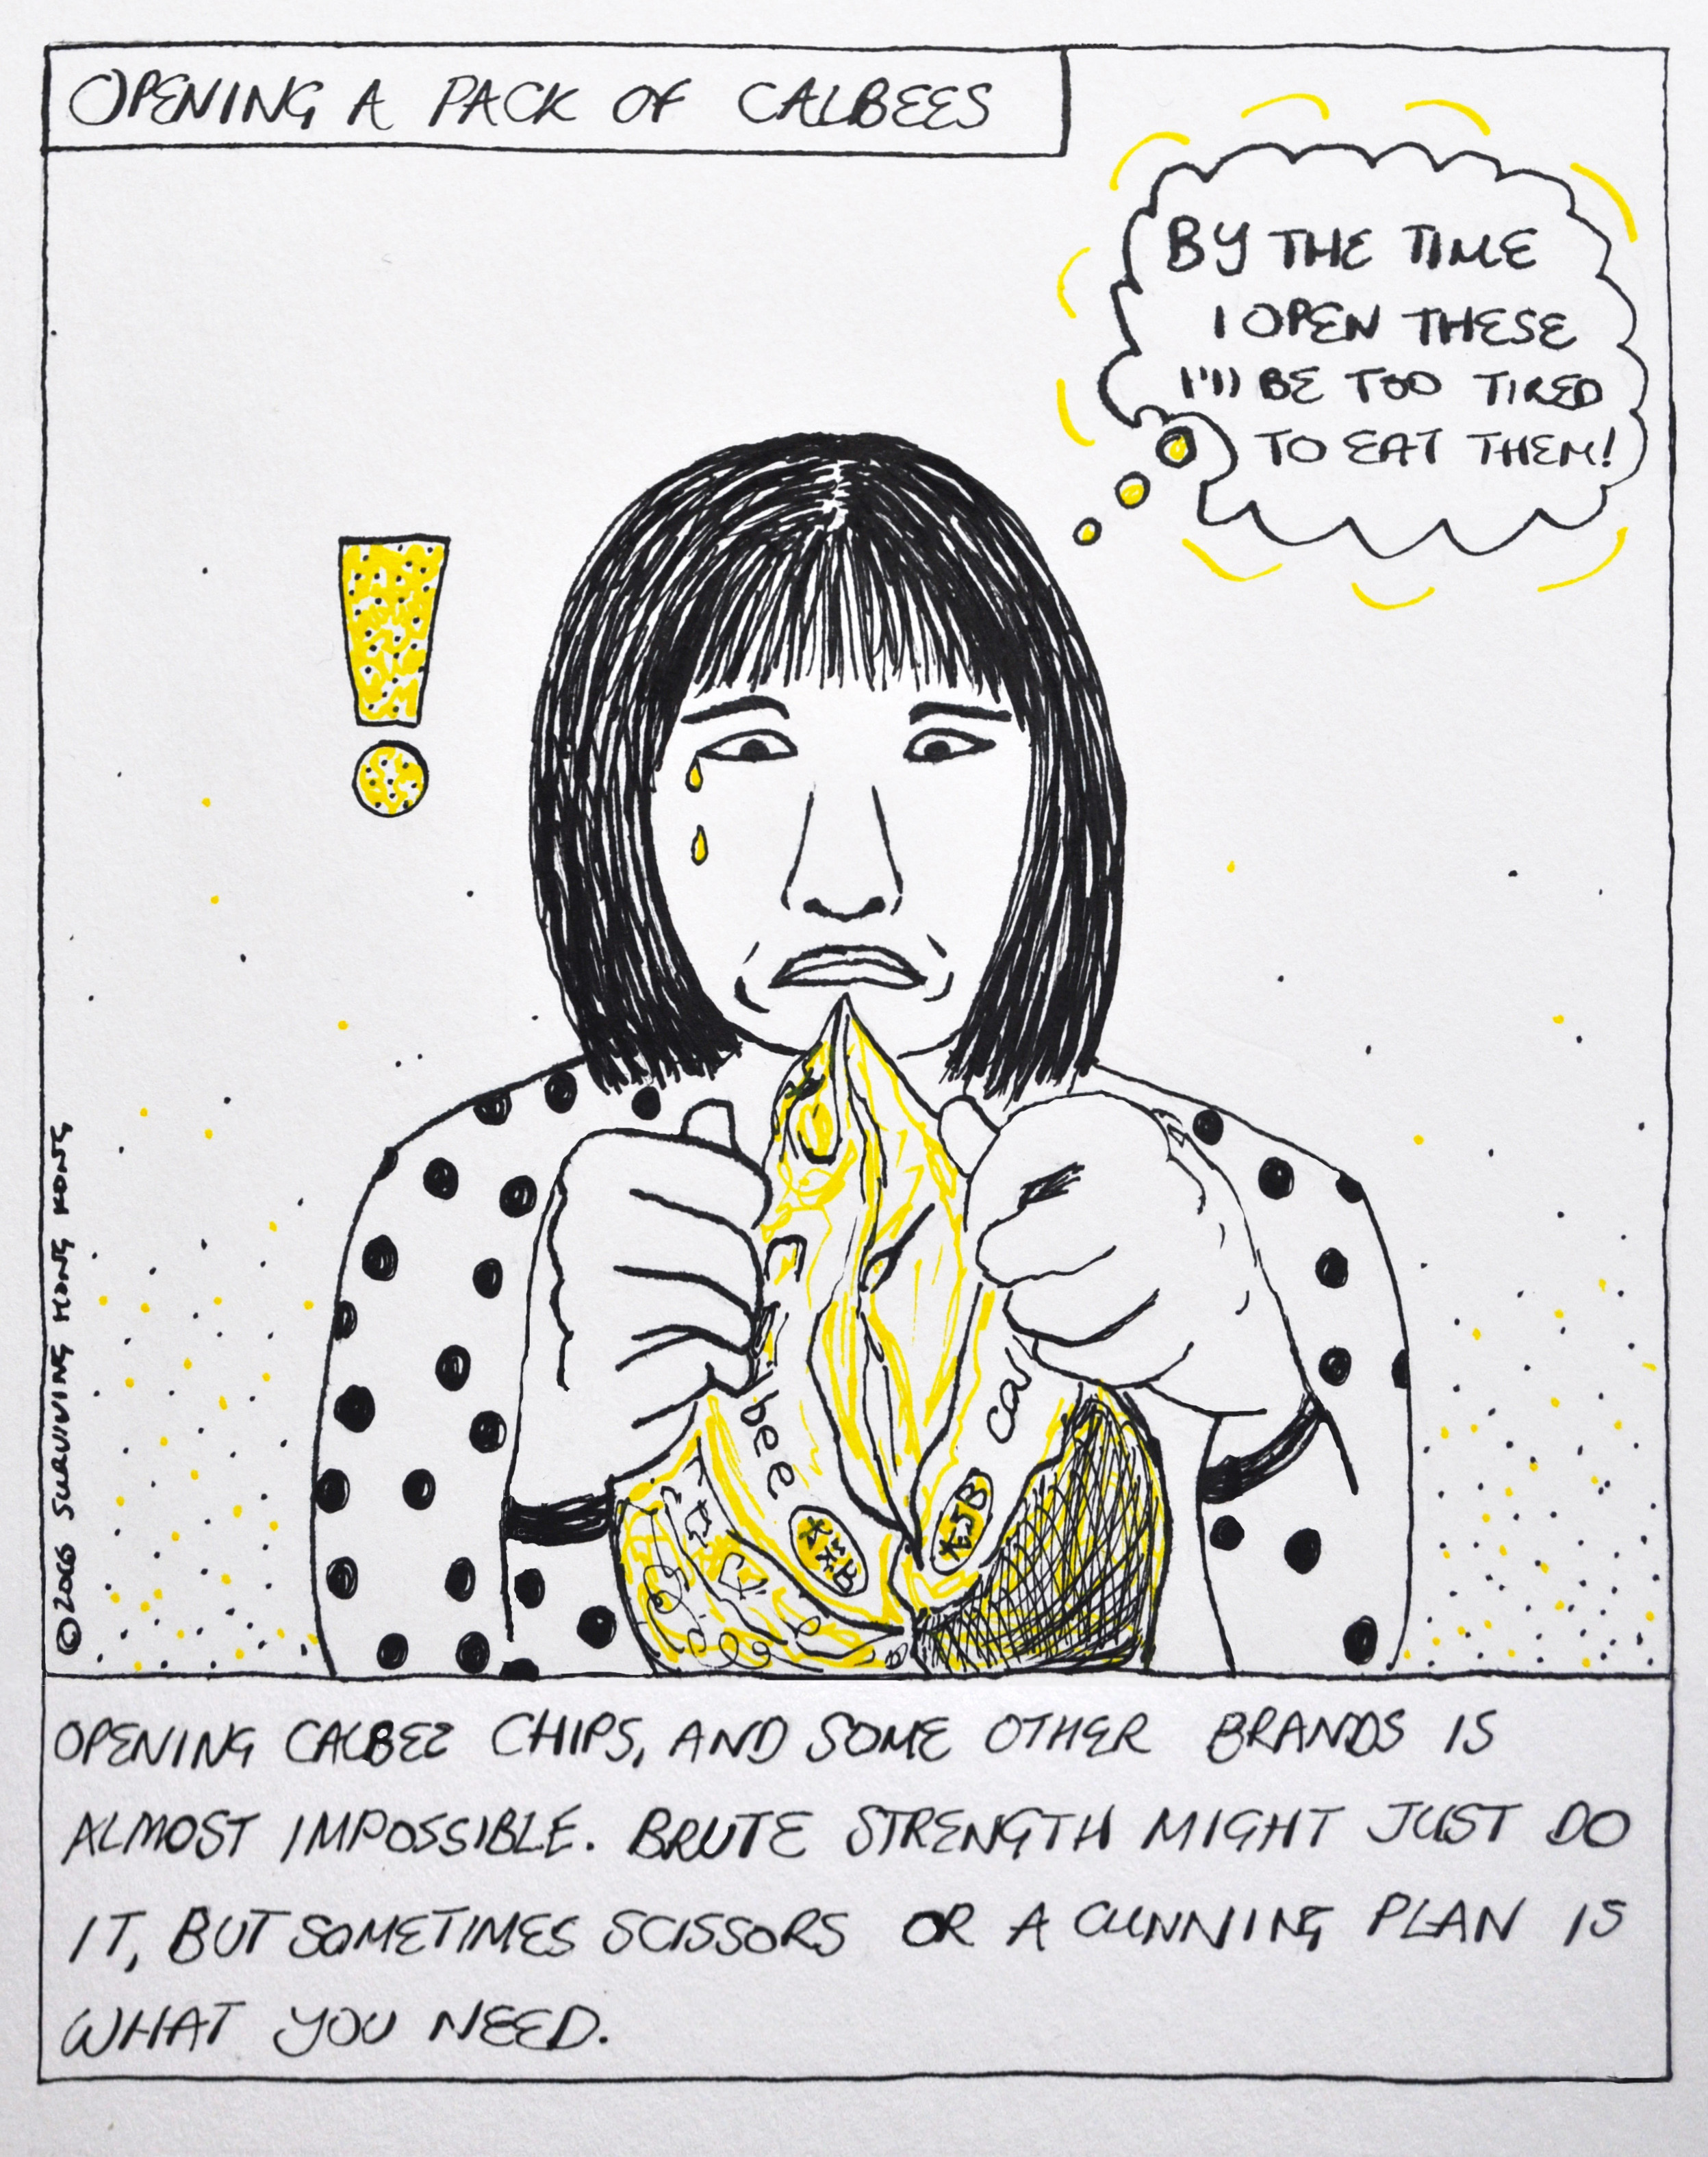 OPENING A PACK OF CALBEES
BY THE TIME
I OPEN THESE
I'll BE TOO TIRED
TO EAT THEM!
bee
cal
© 2006 SURVIVING HONG KONG
OPENING CALBEE CHIPS, AND SOME OTHER BRANDS IS
ALMOST IMPOSSIBLE. BRUTE STRENGTH MIGHT JUST DO
IT, BUT SOMETIMES SCISSORS OR A CUNNING PLAN IS
WHAT YOU NEED.